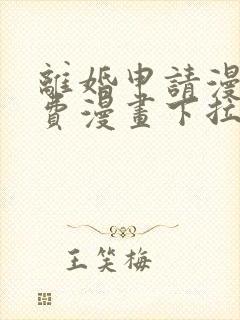 離婚申請漫
費漫畫下拉
王笑梅